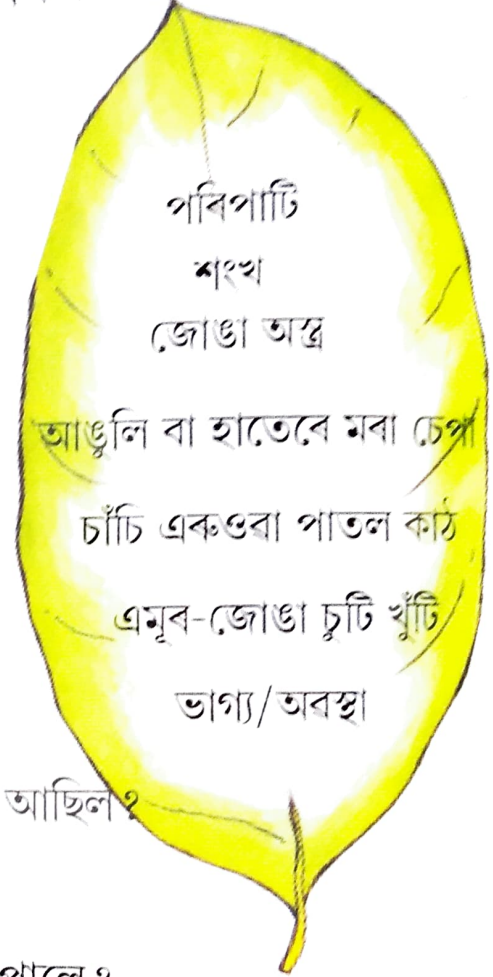 পৰিপাটি
শংখ
জোঙা অস্ত্ৰ
আঙুলি বা হাতেৰে মৰা চেপা
চাঁচি এৰুওৱা পাতল কাঠ
এমূৰ-জোঙা চুটি খুঁটি
ভাগ্য/অৱস্থা
আছিল ?
পালে ?